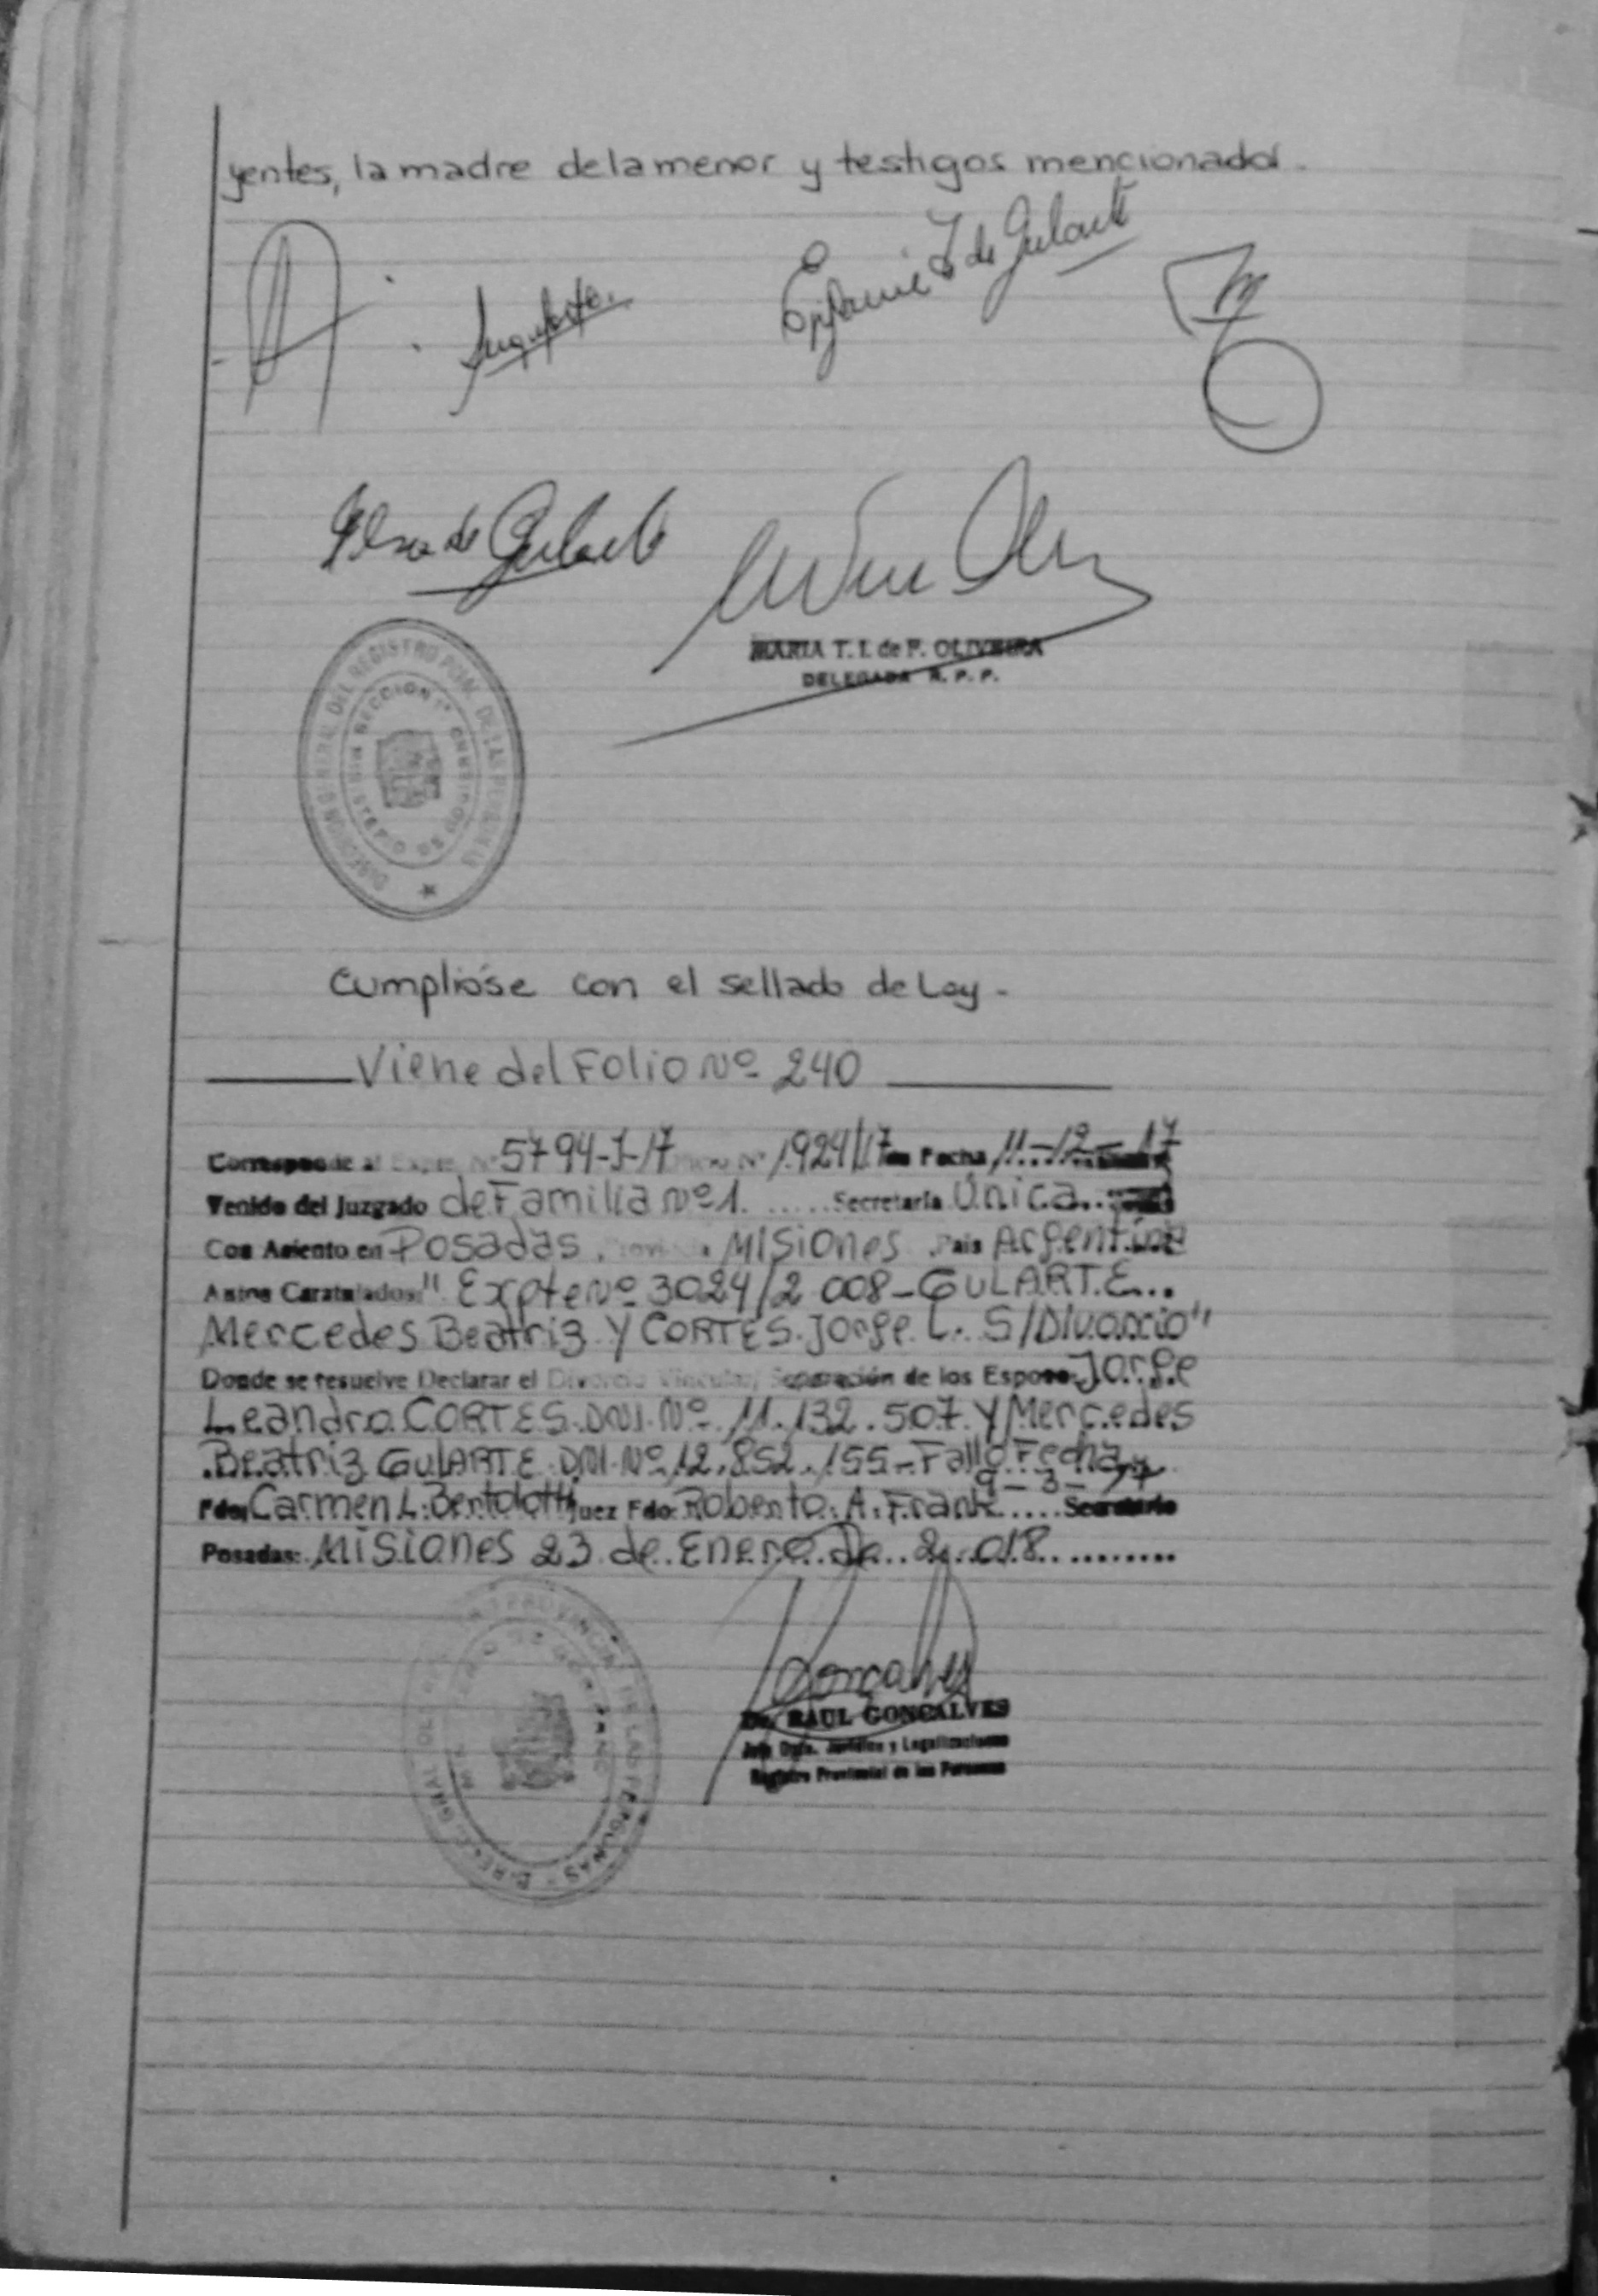 yentes, la madre de la menor y testigos mencionados.
Epifania I de Gularte
Elsa de Gularte
MARIA T. I. de F. OLIVEIRA
DELEGADA R. P. P.
DIRECCION GENERAL DEL REGISTRO PCIAL. DE LAS PERSONAS
SECCION 1ª
Cumplióse con el sellado de Ley -
Viene del Folio Nº 240
Corresponde al Expte. Nº 5794-J-17 Oficio Nº 1924/17 de Fecha 11-12-17
Venido del Juzgado de Familia Nº 1. Secretaría Única
Con Asiento en Posadas. Provincia Misiones. País Argentina
Autos Caratulados: "Expte Nº 3024/2008-GULARTE
Mercedes Beatriz Y CORTES Jorge L. S/Divorcio"
Donde se resuelve Declarar el Divorcio Vincular, Separación de los Esposos Jorge
Leandro CORTES DNI. Nº 11.132.507 Y Mercedes
Beatriz GULARTE DNI. Nº 12.852.155-Fallo Fecha
9-3-
Fdo: Carmen L. Bertolotti Juez Fdo: Roberto A. Frank Secretario
Posadas: Misiones 23 de Enero De 2.018
Goncalves
Dr. RAUL GONCALVES
Jefe Dpto. Jurídico y Legalizaciones
Registro Provincial de las Personas